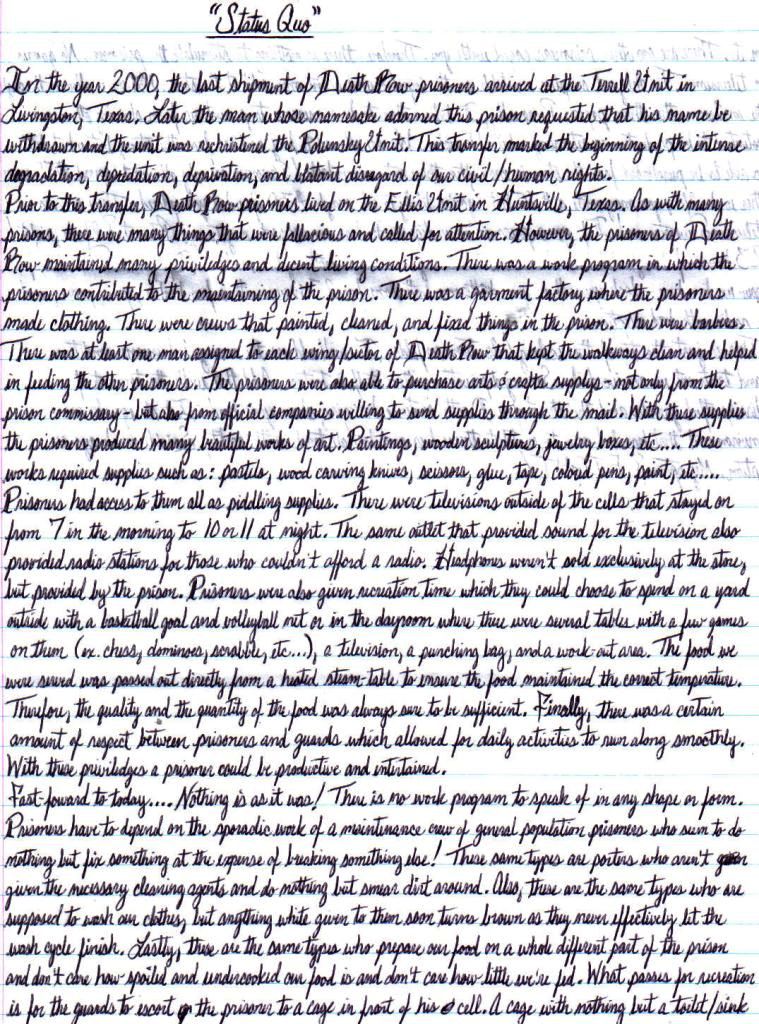 "Status Quo"
In the year 2000, the last shipment of Death Row prisoners arrived at the Terrell Unit in
Livingston, Texas. Later the man whose namesake adorned this prison requested that his name be
withdrawn and the unit was rechristened the Polunsky Unit. This transfer marked the beginning of the intense
degradation, depredation, deprivation, and blatant disregard of our civil/human rights.
Prior to this transfer, Death Row prisoners lived on the Ellis Unit in Huntsville, Texas. As with many
prisons, there were many things that were fallacious and called for attention. However, the prisoners of Death
Row maintained many priviledges and decent living conditions. There was a work program in which the
prisoners contributed to the maintaining of the prison. There was a garment factory where the prisoners
made clothing. There were crews that painted, cleaned, and fixed things in the prison. There were barbers.
There was at least one man assigned to each wing/sector of Death Row that kept the walkways clean and helped
in feeding the other prisoners. The prisoners were also able to purchase arts & crafts supplys - not only from the
prison commissary - but also from official companies willing to send supplies through the mail. With these supplies
the prisoners produced many beautiful works of art. Paintings, wooden sculptures, jewelry boxes, etc.... These
works required supplies such as: pastels, wood carving knives, scissors, glue, tape, colored pens, paint, etc....
Prisoners had access to them all as piddling supplies. There were televisions outside of the cells that stayed on
from 7 in the morning to 10 or 11 at night. The same outlet that provided sound for the television also
provided radio stations for those who couldn't afford a radio. Headphones weren't sold exclusively at the store,
but provided by the prison. Prisoners were also given recreation time which they could choose to spend on a yard
outside with a basketball goal and volleyball net or in the dayroom where there were several tables with a few games
on them (ex. chess, dominoes, scrabble, etc...), a television, a punching bag, and a work-out area. The food we
were served was passed out directly from a heated steam-table to ensure the food maintained the correct temperature.
Therefore, the quality and the quantity of the food was always sure to be sufficient. Finally, there was a certain
amount of respect between prisoners and guards which allowed for daily activities to run along smoothly.
With these priviledges a prisoner could be productive and entertained.
Fast-foward to today.... Nothing is as it was! There is no work program to speak of in any shape or form.
Prisoners have to depend on the sporadic work of a maintenance crew of general population prisoners who seem to do
nothing but fix something at the expense of breaking something else! These same types are porters who aren't
given the necessary cleaning agents and do nothing but smear dirt around. Also, these are the same types who are
supposed to wash our clothes, but anything white given to them soon turns brown as they never effectively let the
wash cycle finish. Lastly, these are the same types who prepare our food on a whole different part of the prison
and don't care how spoiled and undercooked our food is and don't care how little we're fed. What passes for recreation
is for the guards to escort the prisoner to a cage in front of his cell. A cage with nothing but a toilet/sink